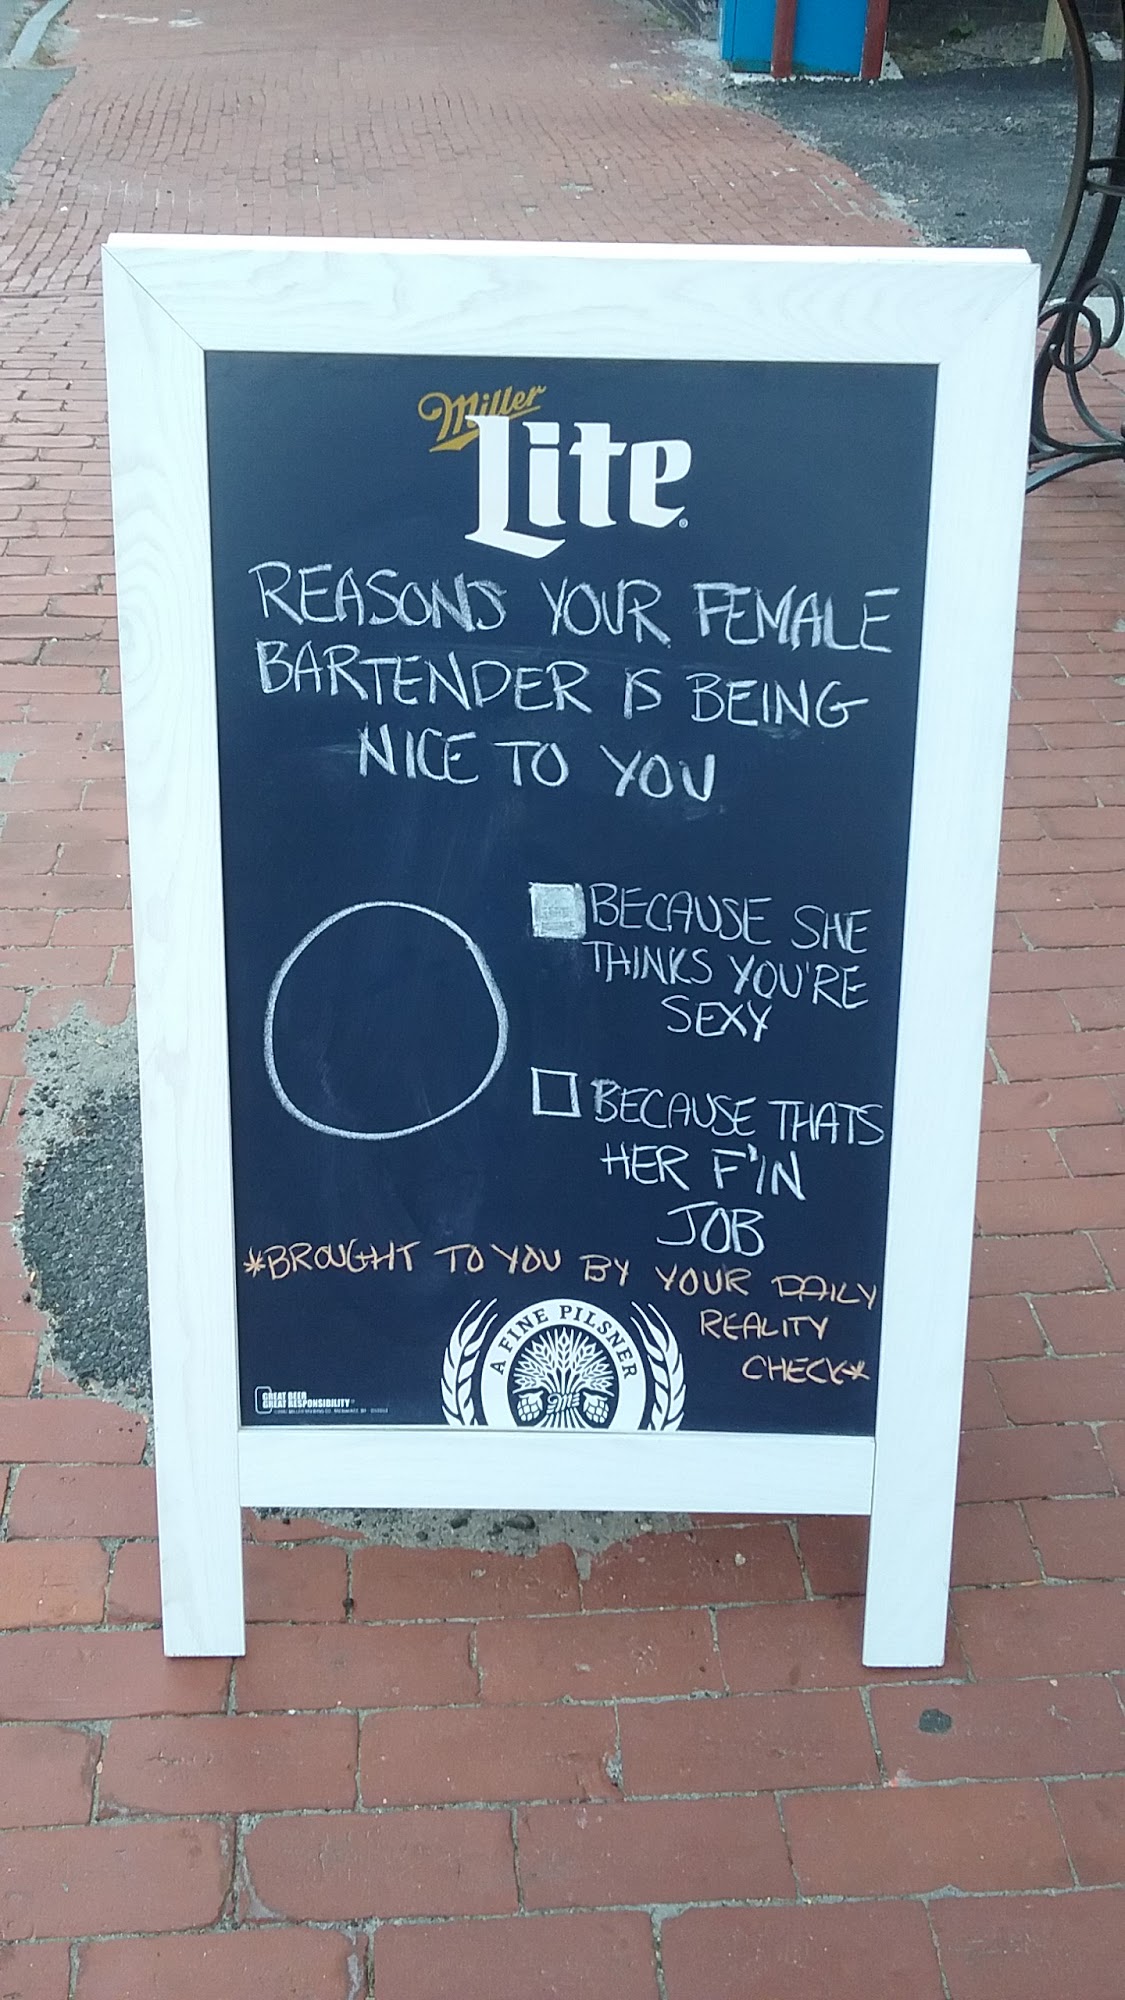 Miller
Lite
REASONS YOUR FEMALE
BARTENDER IS BEING
NICE TO YOU
BECAUSE SHE
THINKS YOU'RE
SEXY
BECAUSE THATS
HER F'IN
JOB
*BROUGHT TO YOU BY YOUR DAILY
REALITY
CHECK*
A FINE PILSNER
GREAT BEER
GREAT RESPONSIBILITY